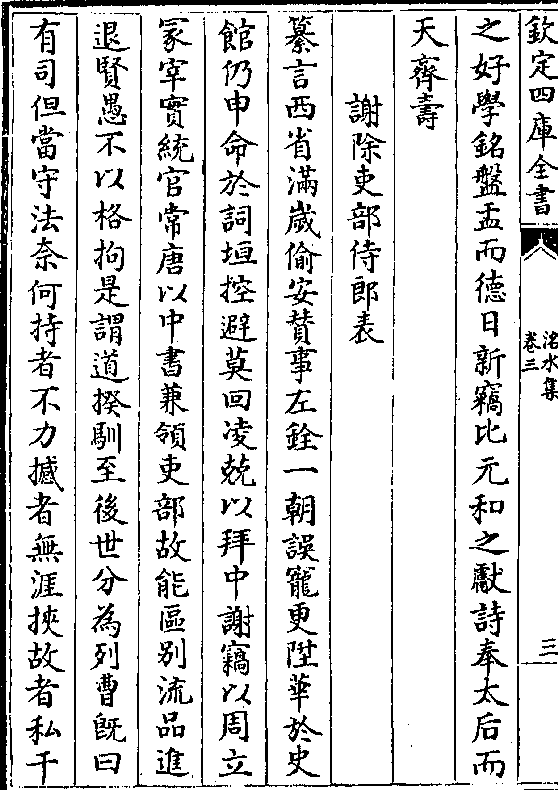 欽定四庫全書
洺水集
卷三
三
之好學銘盤盂而德日新竊比元和之獻詩奉太后而
天齊壽
謝除吏部侍郎表
纂言西省滿歲偷安賛事左銓一朝誤寵更陞華於史
館仍申命於詞垣控避莫回凌兢以拜中謝竊以周立
冢宰實統官常唐以中書兼領吏部故能區別流品進
退賢愚不以格拘是謂道揆馴至後世分為列曹旣曰
有司但當守法奈何持者不力撼者無涯挾故者私干